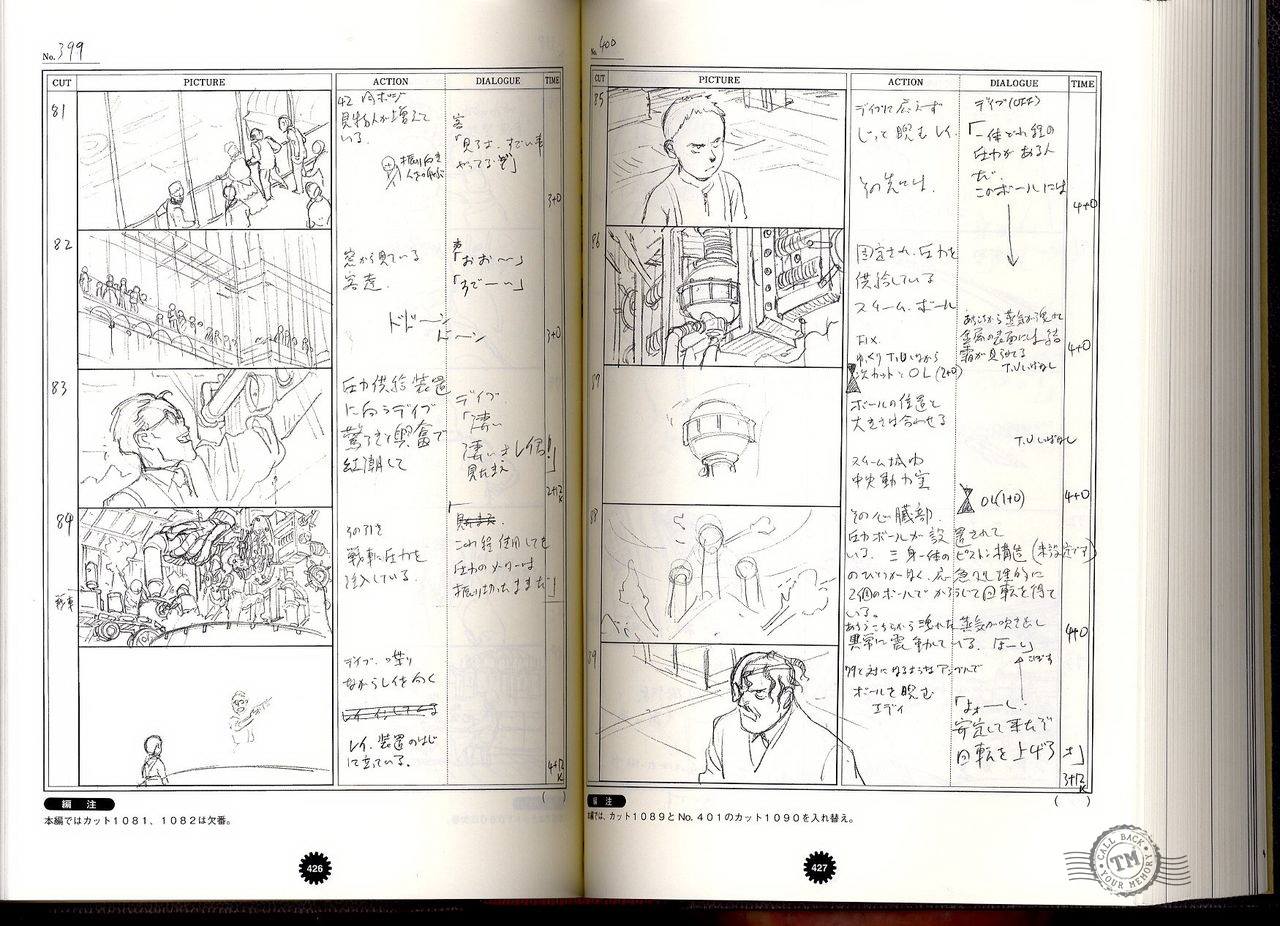 No. 399
CUT PICTURE ACTION DIALOGUE TIME
81
見物人が増えて
いる。
客
「見ろよ、すごい事
やってるぞ」
3+0
82
窓から見ている
客達。
声
「おお〜」
ドドーン
ドーン
3+0
83
圧力供給装置
に向うデイブ
驚きと興奮で
紅潮して
デイブ
「凄い
凄いさレイ君!
見たまえ」
2+12
K
84
戦車
その引き
戦車に圧力を
注入している。
これ程使用しても
圧力のメーターは
振り切ったままだ」
デイブ、喋り
ながらレイを向く
レイ、装置のはじ
に立っている。
4+12
K
( )
編 注
本編ではカット1081、1082は欠番。
426
No. 400
CUT PICTURE ACTION DIALOGUE TIME
85
デイブに応えず
じっと睨むレイ。
その先には、
デイブ(OFF)
「一体どれ程の
圧力がある
んだ、
このボールには
4+0
86
固定され、圧力を
供給している
スチーム・ボール
FIX.
ゆっくりT.Uしながら
次カットとOL(2+0)
あちこちから蒸気が洩れて
金属の表面には結
霜が見えてる
T.Uしっぱなし
4+0
87
ボールの位置と
大きさは合わせる
スチーム城内
中央動力室
T.Uしっぱなし
OL(1+0)
4+0
88
その心臓部。
圧力ボールが設置されて
いる。三身一体のピストン構造(未設定です)
のひとつが無く、応急処理的に
2個のボールでかろうじて回転を得て
いる。
あちこちから洩れた蒸気が吹き出し
異常に震動している。
4+0
89
ボールを睨む
エディ
「よぉーし!
安定して来たぞ
回転を上げろォ」
3+12
K
( )
編 注
本編では、カット1089とNo.401のカット1090を入れ替え。
427
CALL BACK
TM
YOUR MEMORY